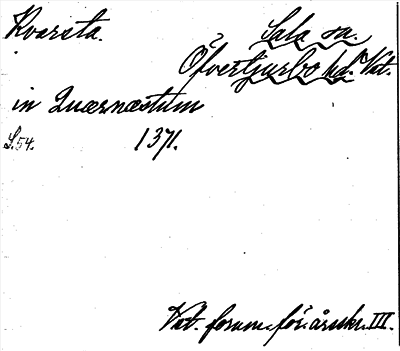 Kversta.
Sala sn.
Öfvertjurbo hd. Vst.
in Quærnæstum
S. 54.
1371.
Vst. fornm. för. årsskr. III.